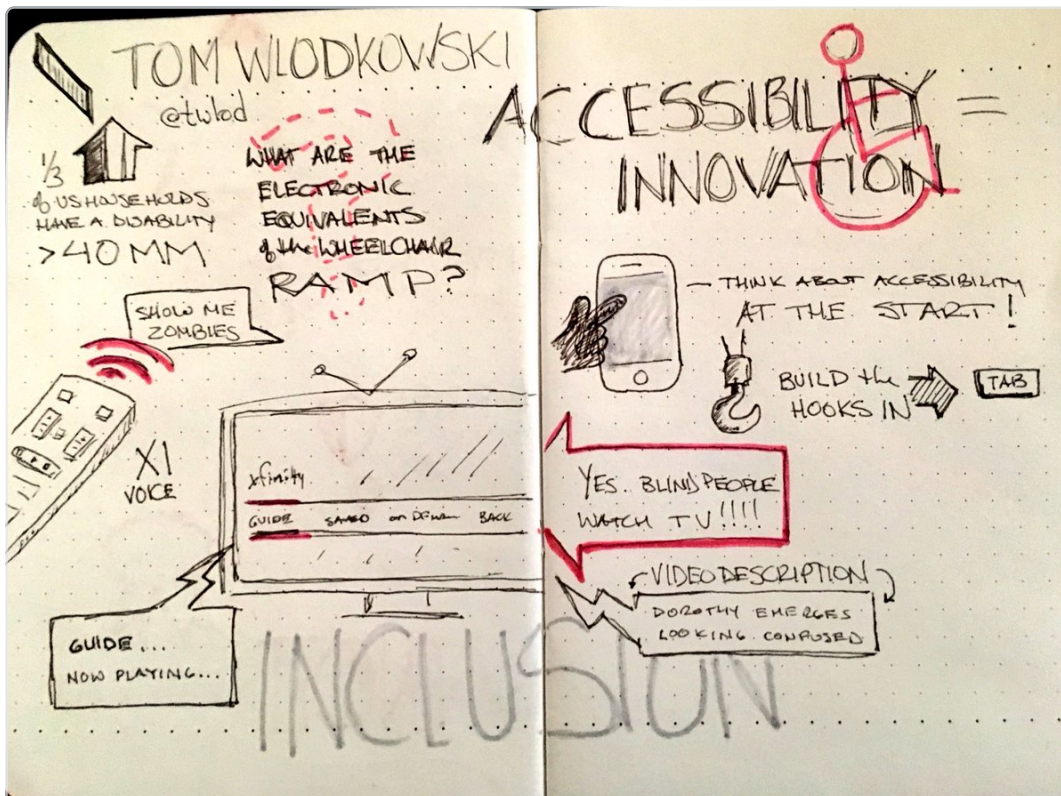 TOM WLODKOWSKI
@twlod
1/3
of US HOUSEHOLDS
HAVE A DISABILITY
>40 MM
WHAT ARE THE
ELECTRONIC
EQUIVALENTS
of the WHEELCHAIR
RAMP?
SHOW ME
ZOMBIES
X1
VOICE
xfinity
GUIDE SAVED on DEMAND BACK
GUIDE....
NOW PLAYING...
ACCESSIBILITY =
INNOVATION
— THINK ABOUT ACCESSIBILITY
AT THE START!
BUILD the
HOOKS IN
TAB
YES.. BLIND PEOPLE
WATCH TV!!!!
VIDEO DESCRIPTION
DOROTHY EMERGES
LOOKING CONFUSED
INCLUSION